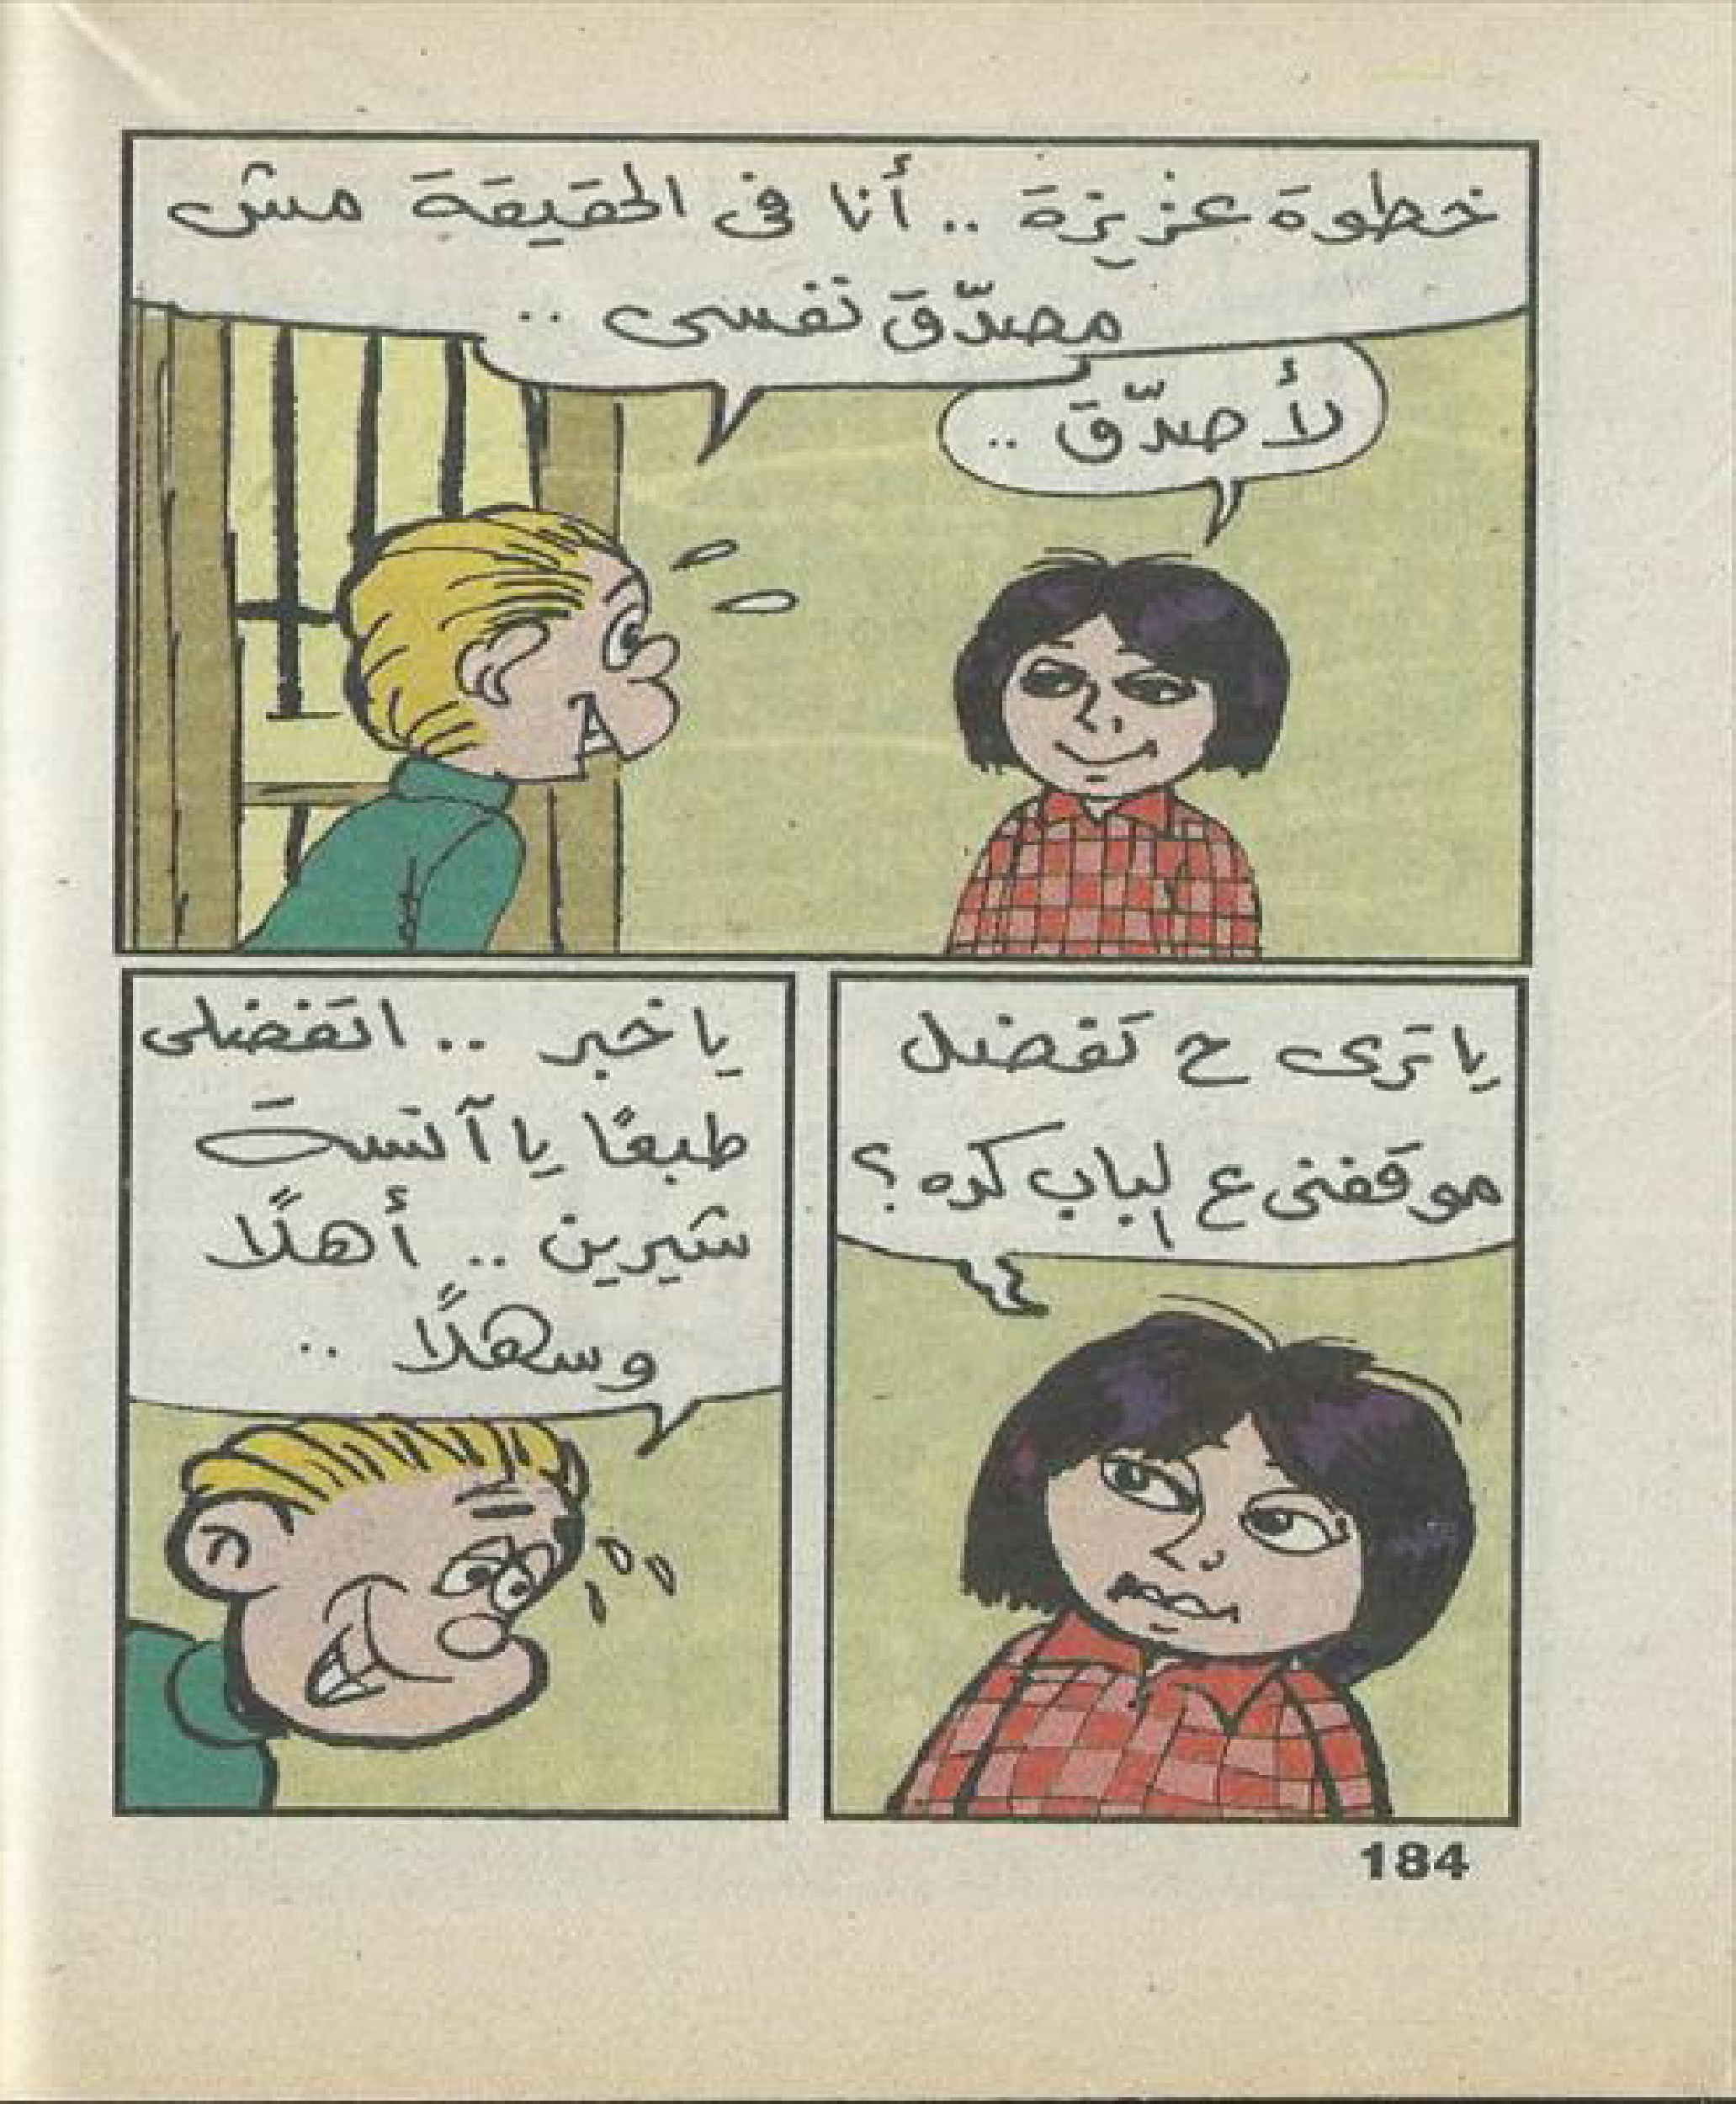 خطوة عزيزة .. أنا فى الحقيقة مش
مصدّق نفسى ..
لأ صدّق ..
يا ترى ح تفضل
موقفنى ع الباب كده ؟
يا خبر .. اتفضلى
طبعًا يا آنسة
شيرين .. أهلًا
وسهلًا ..
184